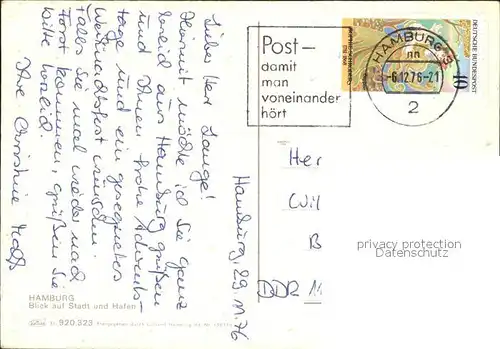 Hamburg, 29.11.76
Lieber Herr Lange!
Hiermit möchte ich Sie ganz
herzlich aus Hamburg grüßen
und Ihnen frohe Advents-
tage und ein gesegnetes
Weihnachtsfest wünschen.
Falls Sie mal wieder nach
Forst kommen, grüßen Sie
bitte herzlich.
Ihre Christine
HAMBURG
Blick auf Stadt und Hafen
920.323
Post –
damit
man
voneinander
hört
HAMBURG
-6.12.76-21
2
DEUTSCHE BUNDESPOST
Her
Wil
B
DDR 11
privacy protection
Datenschutz